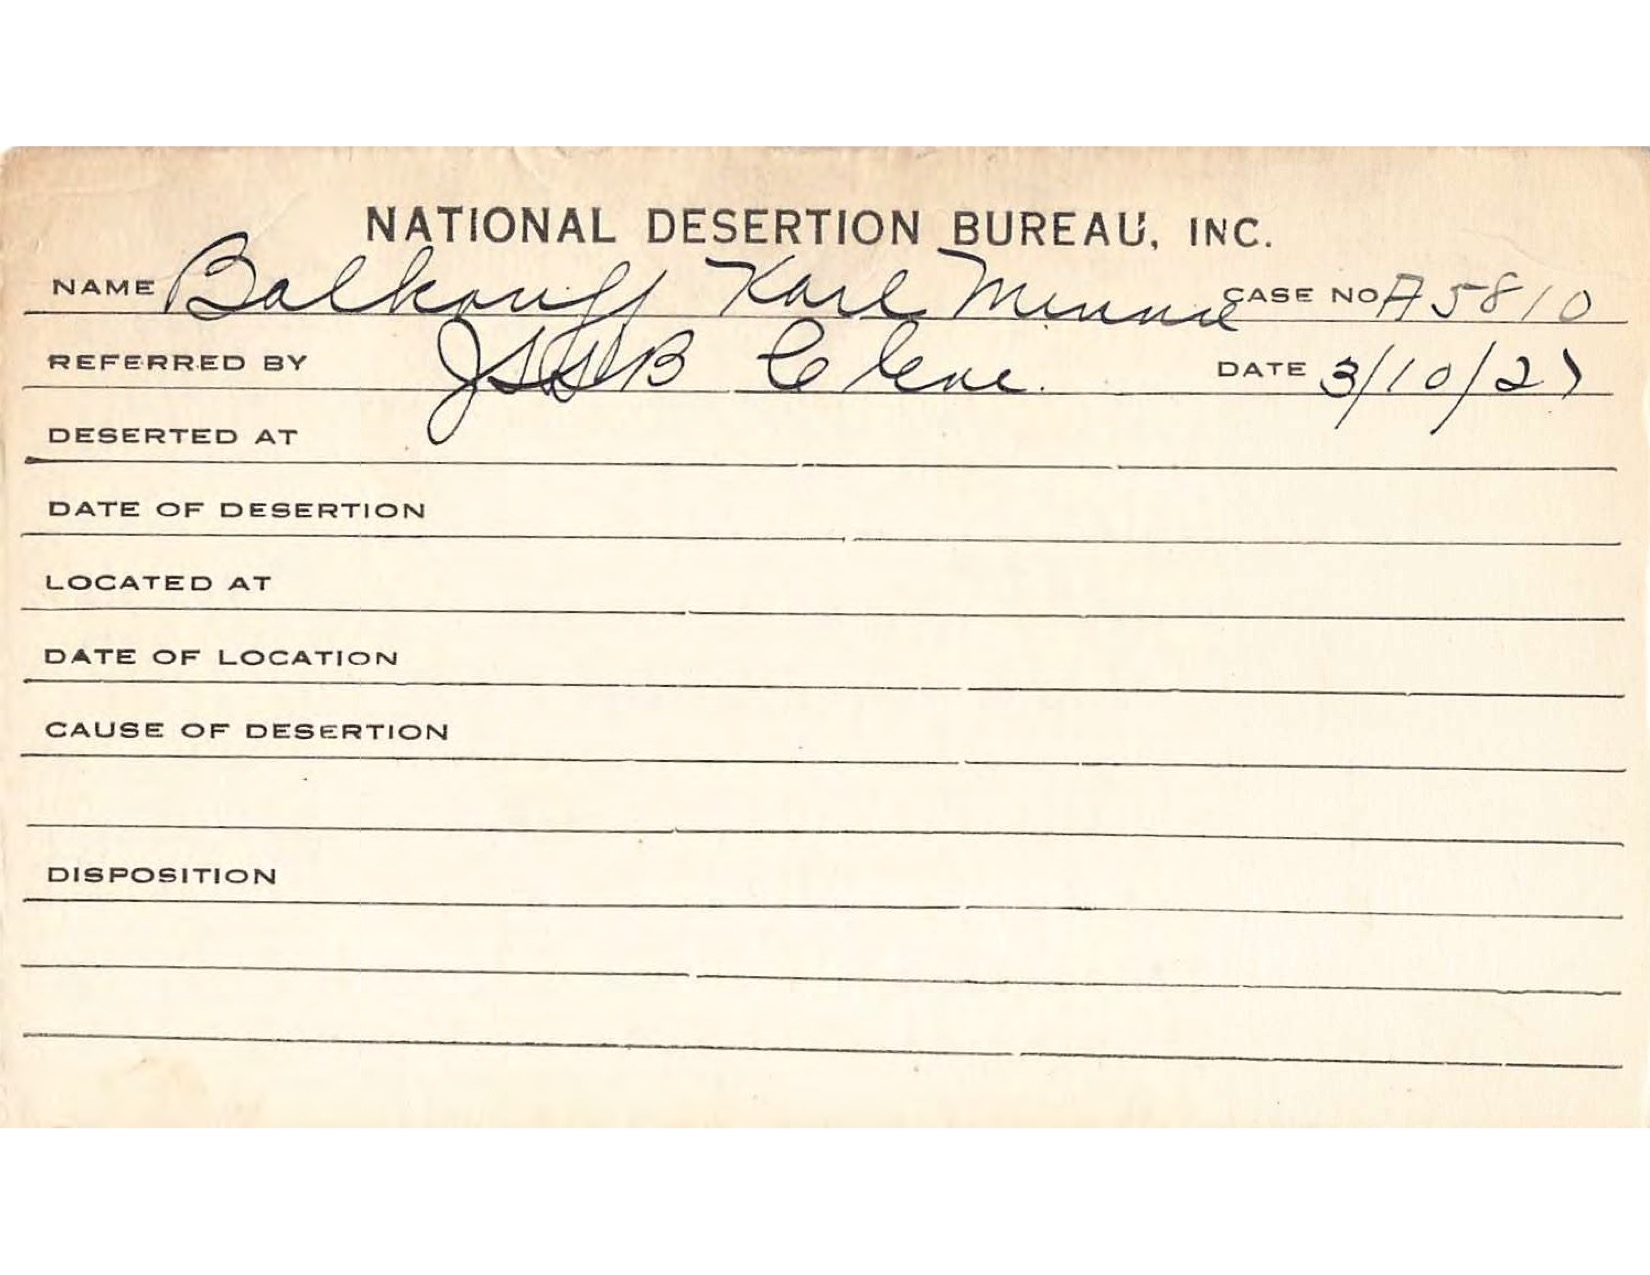 NATIONAL DESERTION BUREAU, INC.
NAME Balkouff Karl Minnie CASE NO A5810
REFERRED BY JSSB Cleve. DATE 3/10/27
DESERTED AT
DATE OF DESERTION
LOCATED AT
DATE OF LOCATION
CAUSE OF DESERTION
DISPOSITION